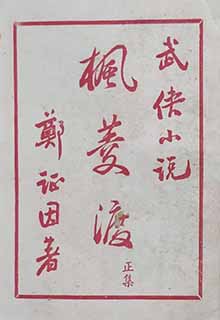 武侠小说
楓菱渡
正集
鄭证因著